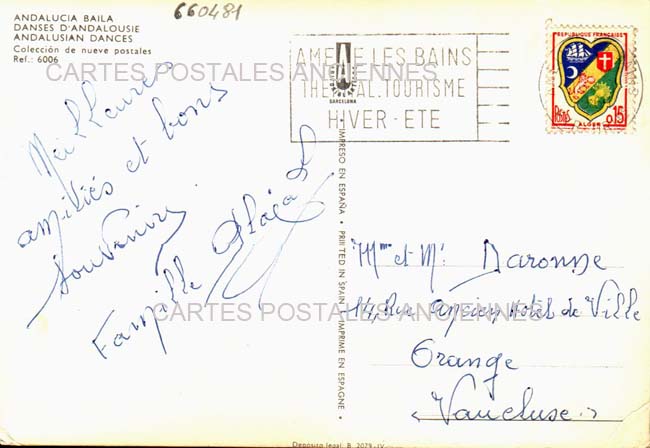 660481
ANDALUCIA BAILA
DANSES D'ANDALOUSIE
ANDALUSIAN DANCES
Colección de nueve postales
Ref.: 6006
AMELIE LES BAINS
THERMAL.TOURISME
HIVER - ETE
BARCELONA
REPUBLIQUE FRANÇAISE
Postes
0,15
ALGER
CARTES POSTALES ANCIENNES
Meilleures
amitiés et bons
souvenirs
Famille
IMPRESO EN ESPAÑA • PRINTED IN SPAIN • IMPRIME EN ESPAGNE
Mme et Mr Daronne
14, Rue Ancien Hotel de Ville
Orange
(Vaucluse)
CARTES POSTALES ANCIENNES
Depósito legal: B. 2079-IV